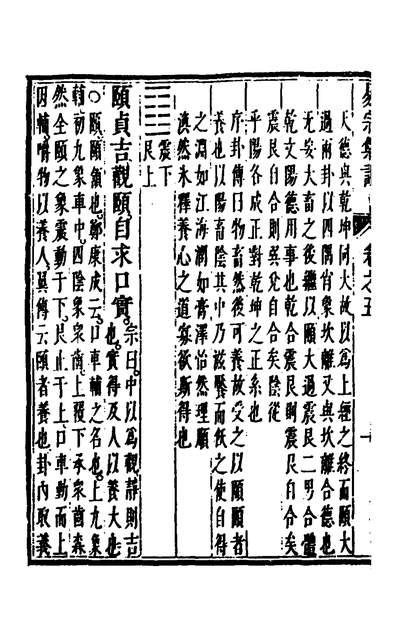 易宗集註 卷之五
天德與乾坤同大故以爲上經之終而頤大
過兩卦以四隅肖象坎離又與坎離合德也
无妄大畜之後繼以頤大過震艮二男合體
乾文陽德用事也乾合震艮則震艮自合矣
震艮自合則巽兌自合矣陰從
乎陽各成正對乾坤之正系也
序卦傳曰物畜然後可養故受之以頤頤者
養也以陽畜陰其中乃滋醫而飲之使自得
之淵如江海潤如膏澤怡然理順
渙然氷釋養心之道寡欲斯得也
震下
艮上
頤貞吉觀頤自求口實宗曰中以爲觀靜則吉
也實得及人以養大也
○頤頤頷也鄭康成云口車輔之名也上九象
輔初九象車中四陰象衆齒上覆下承衆齒森
然全頤之象震動于下艮止于上口車動而上
因輔嚼物以養人巽傳云頤者養也卦内取義